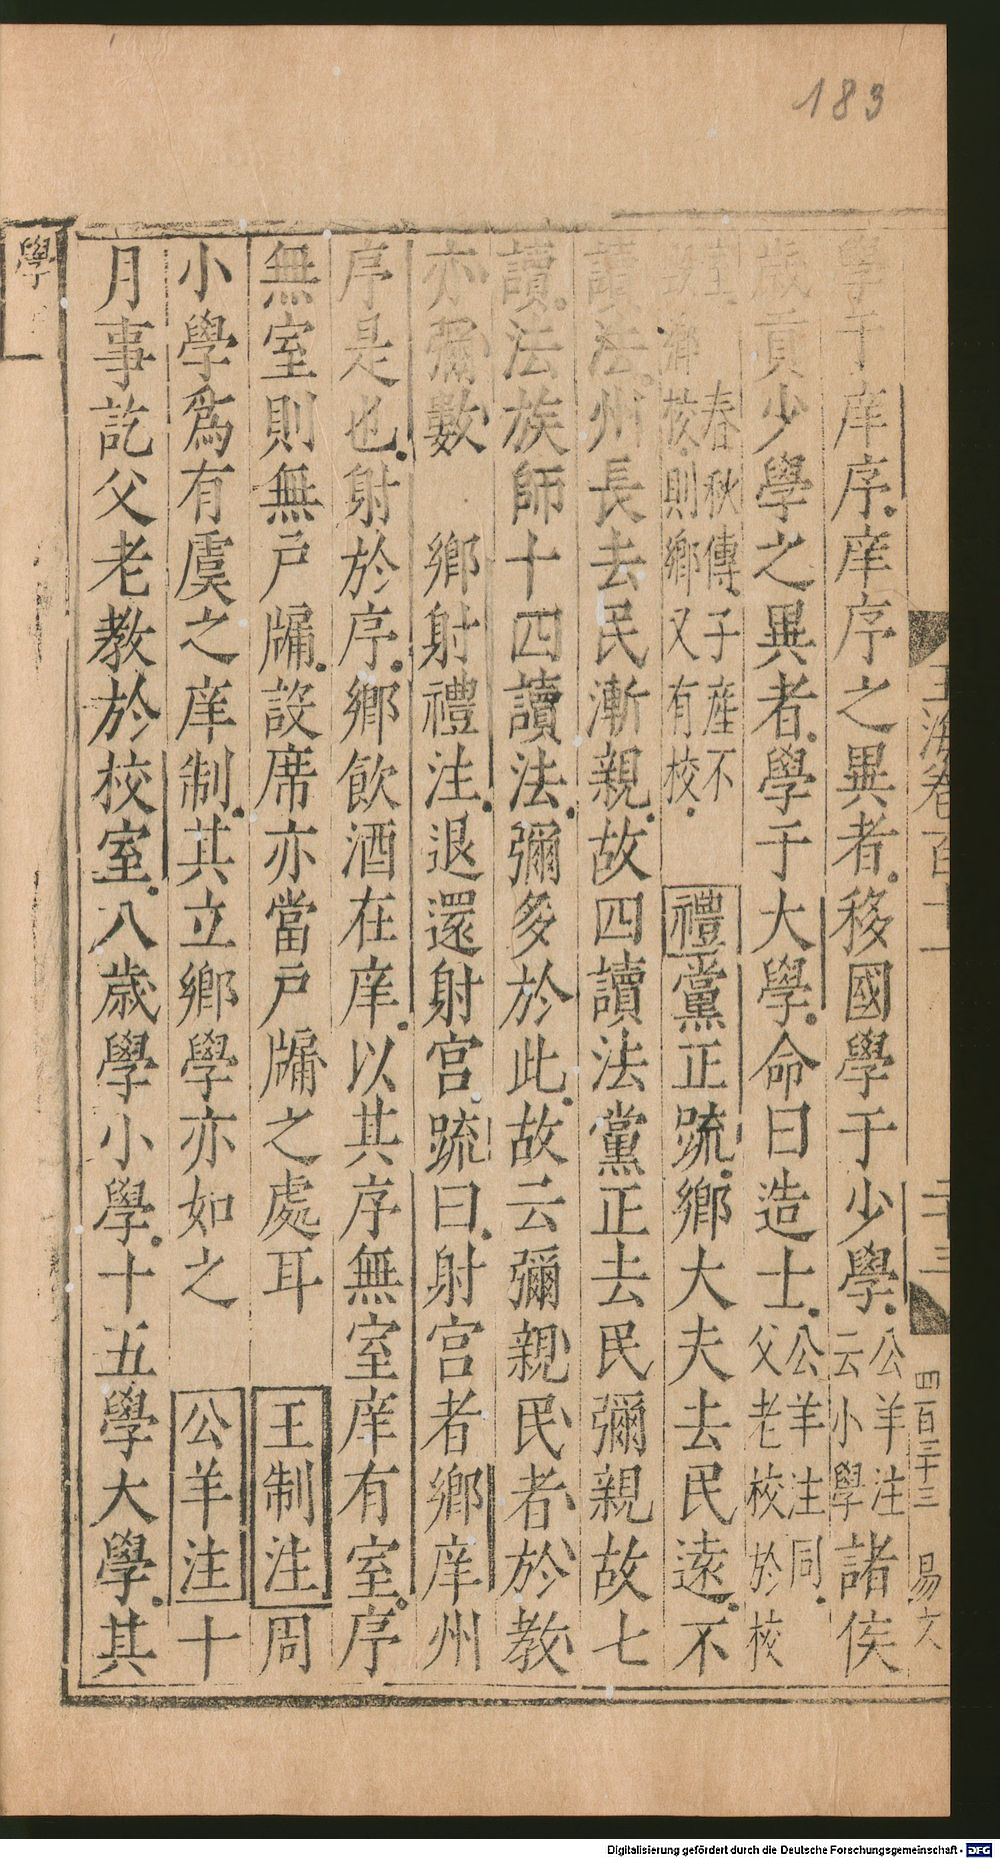 183
玉海卷百十一
二十三
四百三十三
易文
學于庠序庠序之異者移國學于少學公羊注云小學諸侯
歲貢少學之異者學于大學命曰造士公羊注同父老校於校
室春秋傳子產不毀鄉校則鄉又有校禮黨正疏鄉大夫去民遠不
讀法州長去民漸親故四讀法黨正去民彌親故七
讀法族師十四讀法彌多於此故云彌親民者於教
亦彌數 鄉射禮注退還射宮疏曰射宮者鄉庠州
序是也射於序鄉飲酒在庠以其序無室庠有室序
無室則無戶牖設席亦當戶牖之處耳 王制注周
小學爲有虞之庠制其立鄉學亦如之 公羊注十
月事訖父老教於校室八歲學小學十五學大學其
學
Digitalisierung gefördert durch die Deutsche Forschungsgemeinschaft - DFG